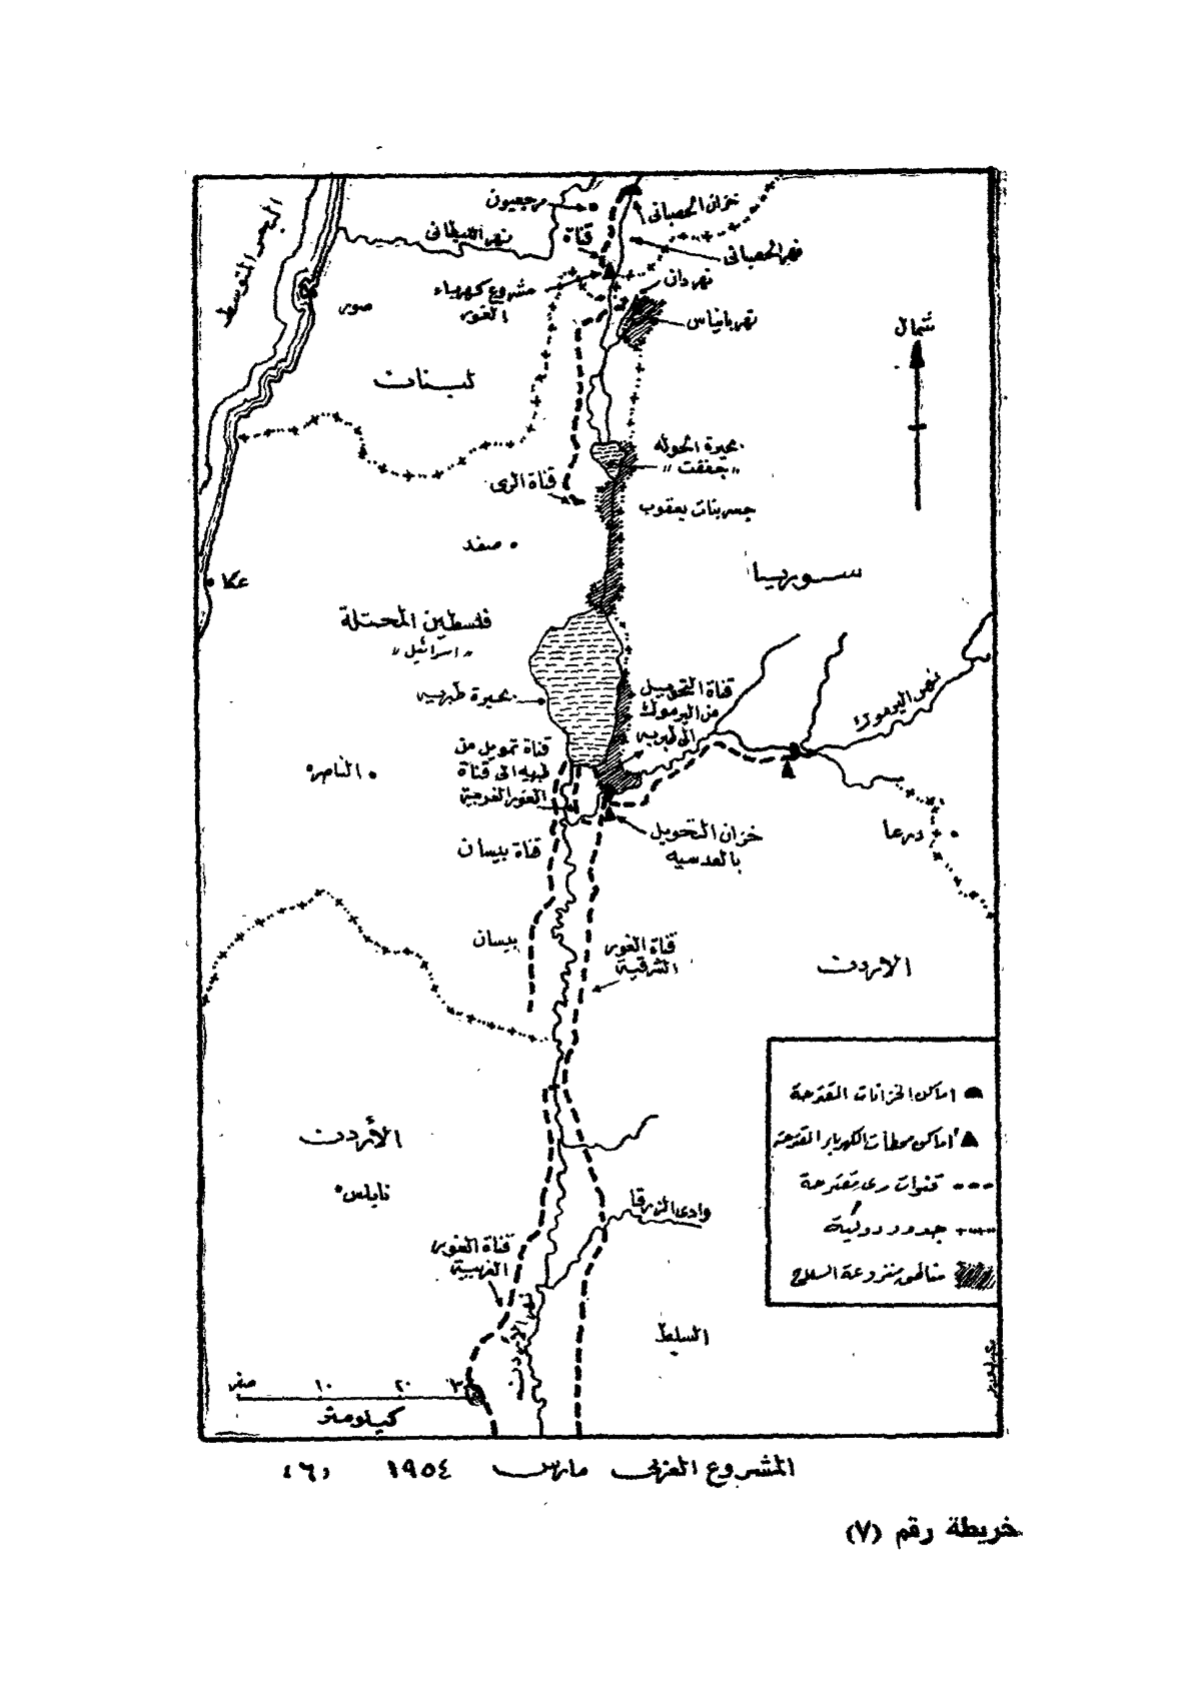 خزان الحصبانى
مرجعيون
نهر الليطانى
قناة
نهر الحصبانى
البحر المتوسط
نهر دان
مشروع كهرباء
الغور
صور
نهر بانياس
شمال
لبنان
بحيرة الحوله
"جففت"
قناة الرى
جسر بنات يعقوب
صفد
سوريا
عكا
فلسطين المحتلة
"اسرائيل"
بحيرة طبريه
قناة التحويل
من اليرموك
الى طبريه
نهر اليرموك
قناة تمويل من
طبريه الى قناة
الغور الغربية
الناصره
خزان التحويل
بالعدسيه
درعا
قناة بيسان
بيسان
قناة الغور
الشرقية
الاردن
اماكن الخزانات المقترحة
اماكن محطات الكهرباء المقترحة
قنوات رى مقترحة
حدود دولية
مناطق منزوعة السلاح
الأردن
نابلس
وادى الزرقا
قناة الغور
الغربية
نهر الاردن
السلط
صفر ١٠ ٢٠ ٣٠
كيلومتر
المشروع العربى مارس ١٩٥٤ (٦)
خريطة رقم (٧)